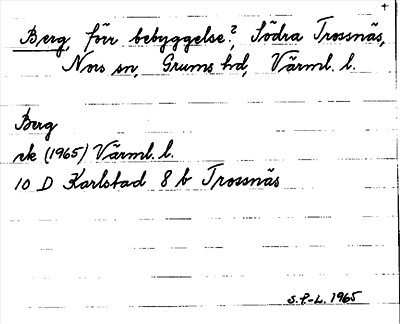 +
Berg, förr bebyggelse?, Södra Trossnäs,
Nors sn, Grums hd, Värml. l.
Berg
ek (1965) Värml. l.
10 D Karlstad 8 b Trossnäs
S.P-L. 1965